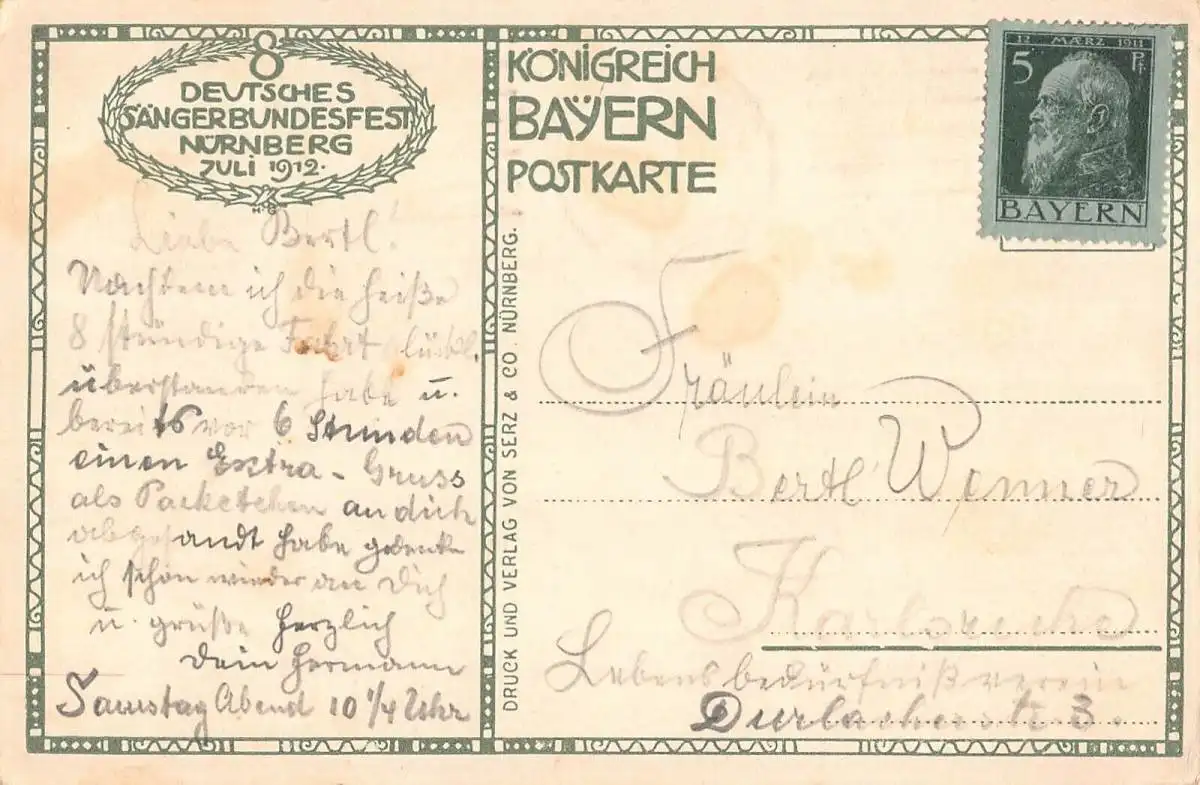 8
DEUTSCHES
SÄNGERBUNDESFEST
NÜRNBERG
JULI 1912.
H G
Liebe Bertl!
Nachdem ich die heiße
8 stündige Fahrt glückl.
überstanden habe u.
bereits vor 6 Stunden
einen Extra-Gruss
als Packetchen an dich
abgesandt habe gedenke
ich schon wieder an Dich
u. grüße herzlich
dein Hermann
Samstag Abend 10 1/4 Uhr
DRUCK UND VERLAG VON SERZ & CO. NÜRNBERG.
KÖNIGREICH
BAYERN
POSTKARTE
12 MÄRZ 1911
5 Pf
BAYERN
Fräulein
Bertl Wenner
Karlsruhe
Lebensbedürfnißverein
Durlacherstr. 3.